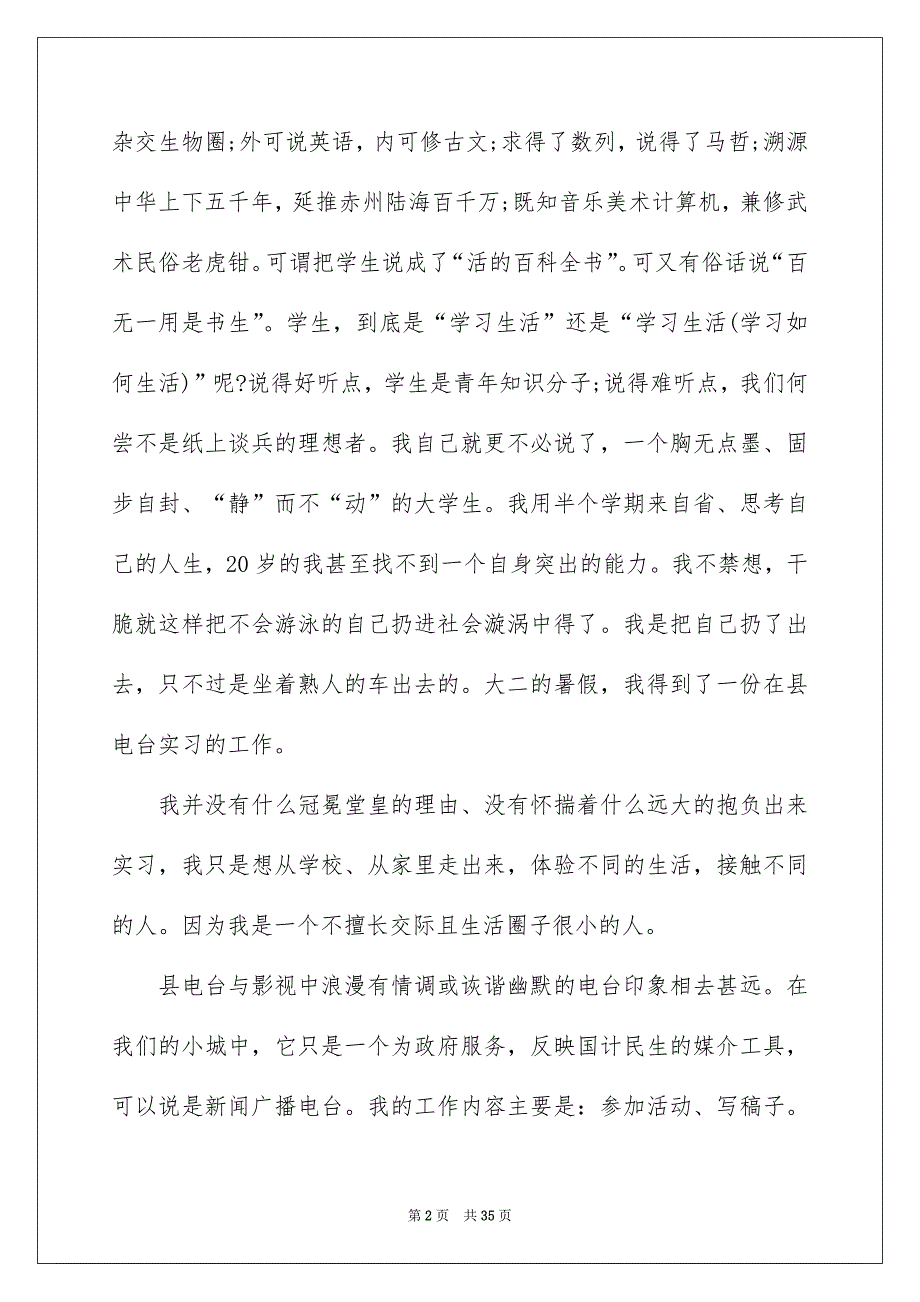 杂交生物圈;外可说英语，内可修古文;求得了数列，说得了马哲;溯源
中华上下五千年，延推赤州陆海百千万;既知音乐美术计算机，兼修武
术民俗老虎钳。可谓把学生说成了“活的百科全书”。可又有俗话说“百
无一用是书生”。学生，到底是“学习生活”还是“学习生活(学习如
何生活)”呢?说得好听点，学生是青年知识分子;说得难听点，我们何
尝不是纸上谈兵的理想者。我自己就更不必说了，一个胸无点墨、固
步自封、“静”而不“动”的大学生。我用半个学期来自省、思考自
己的人生，20 岁的我甚至找不到一个自身突出的能力。我不禁想，干
脆就这样把不会游泳的自己扔进社会漩涡中得了。我是把自己扔了出
去，只不过是坐着熟人的车出去的。大二的暑假，我得到了一份在县
电台实习的工作。
我并没有什么冠冕堂皇的理由、没有怀揣着什么远大的抱负出来
实习，我只是想从学校、从家里走出来，体验不同的生活，接触不同
的人。因为我是一个不擅长交际且生活圈子很小的人。
县电台与影视中浪漫有情调或诙谐幽默的电台印象相去甚远。在
我们的小城中，它只是一个为政府服务，反映国计民生的媒介工具，
可以说是新闻广播电台。我的工作内容主要是：参加活动、写稿子。
第 2 页 共 35 页